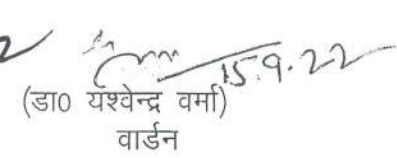 15.9.22
(डा0 यश्वेन्द्र वर्मा)
वार्डन